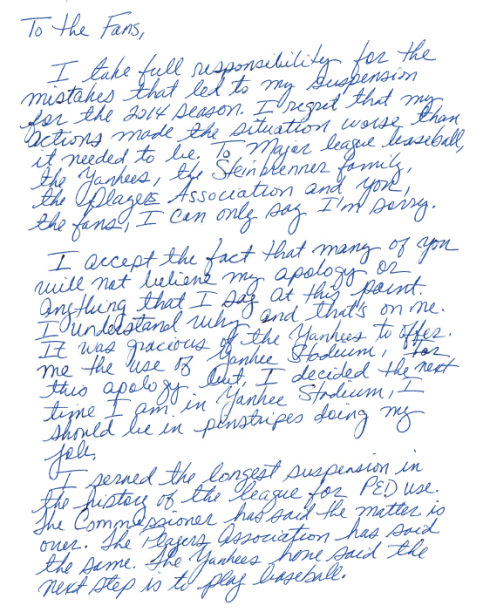 To the Fans,
I take full responsibility for the
mistakes that led to my suspension
for the 2014 season. I regret that my
actions made the situation worse than
it needed to be. To Major league baseball,
the Yankees, the Steinbrenner family,
the Players Association and you,
the fans, I can only say I'm sorry.
I accept the fact that many of you
will not believe my apology or
anything that I say at this point.
I understand why and that's on me.
It was gracious of the Yankees to offer
me the use of Yankee Stadium, for
this apology but, I decided the next
time I am in Yankee Stadium, I
should be in pinstripes doing my
job.
I served the longest suspension in
the history of the league for PED use.
The Commissioner has said the matter is
over. The Players Association has said
the same. The Yankees have said the
next step is to play baseball.